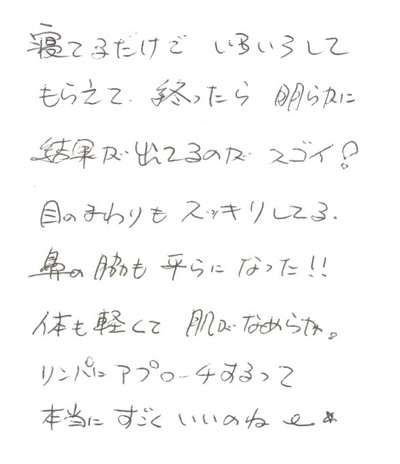 寝てるだけで いろいろして
もらえて、終ったら 明らかに
結果が出てるのが スゴイ?
目のまわりも スッキリしてる、
鼻の脇も 平らに なった!!
体も軽くて 肌が なめらか。
リンパに アプローチするって
本当に すごく いいのね